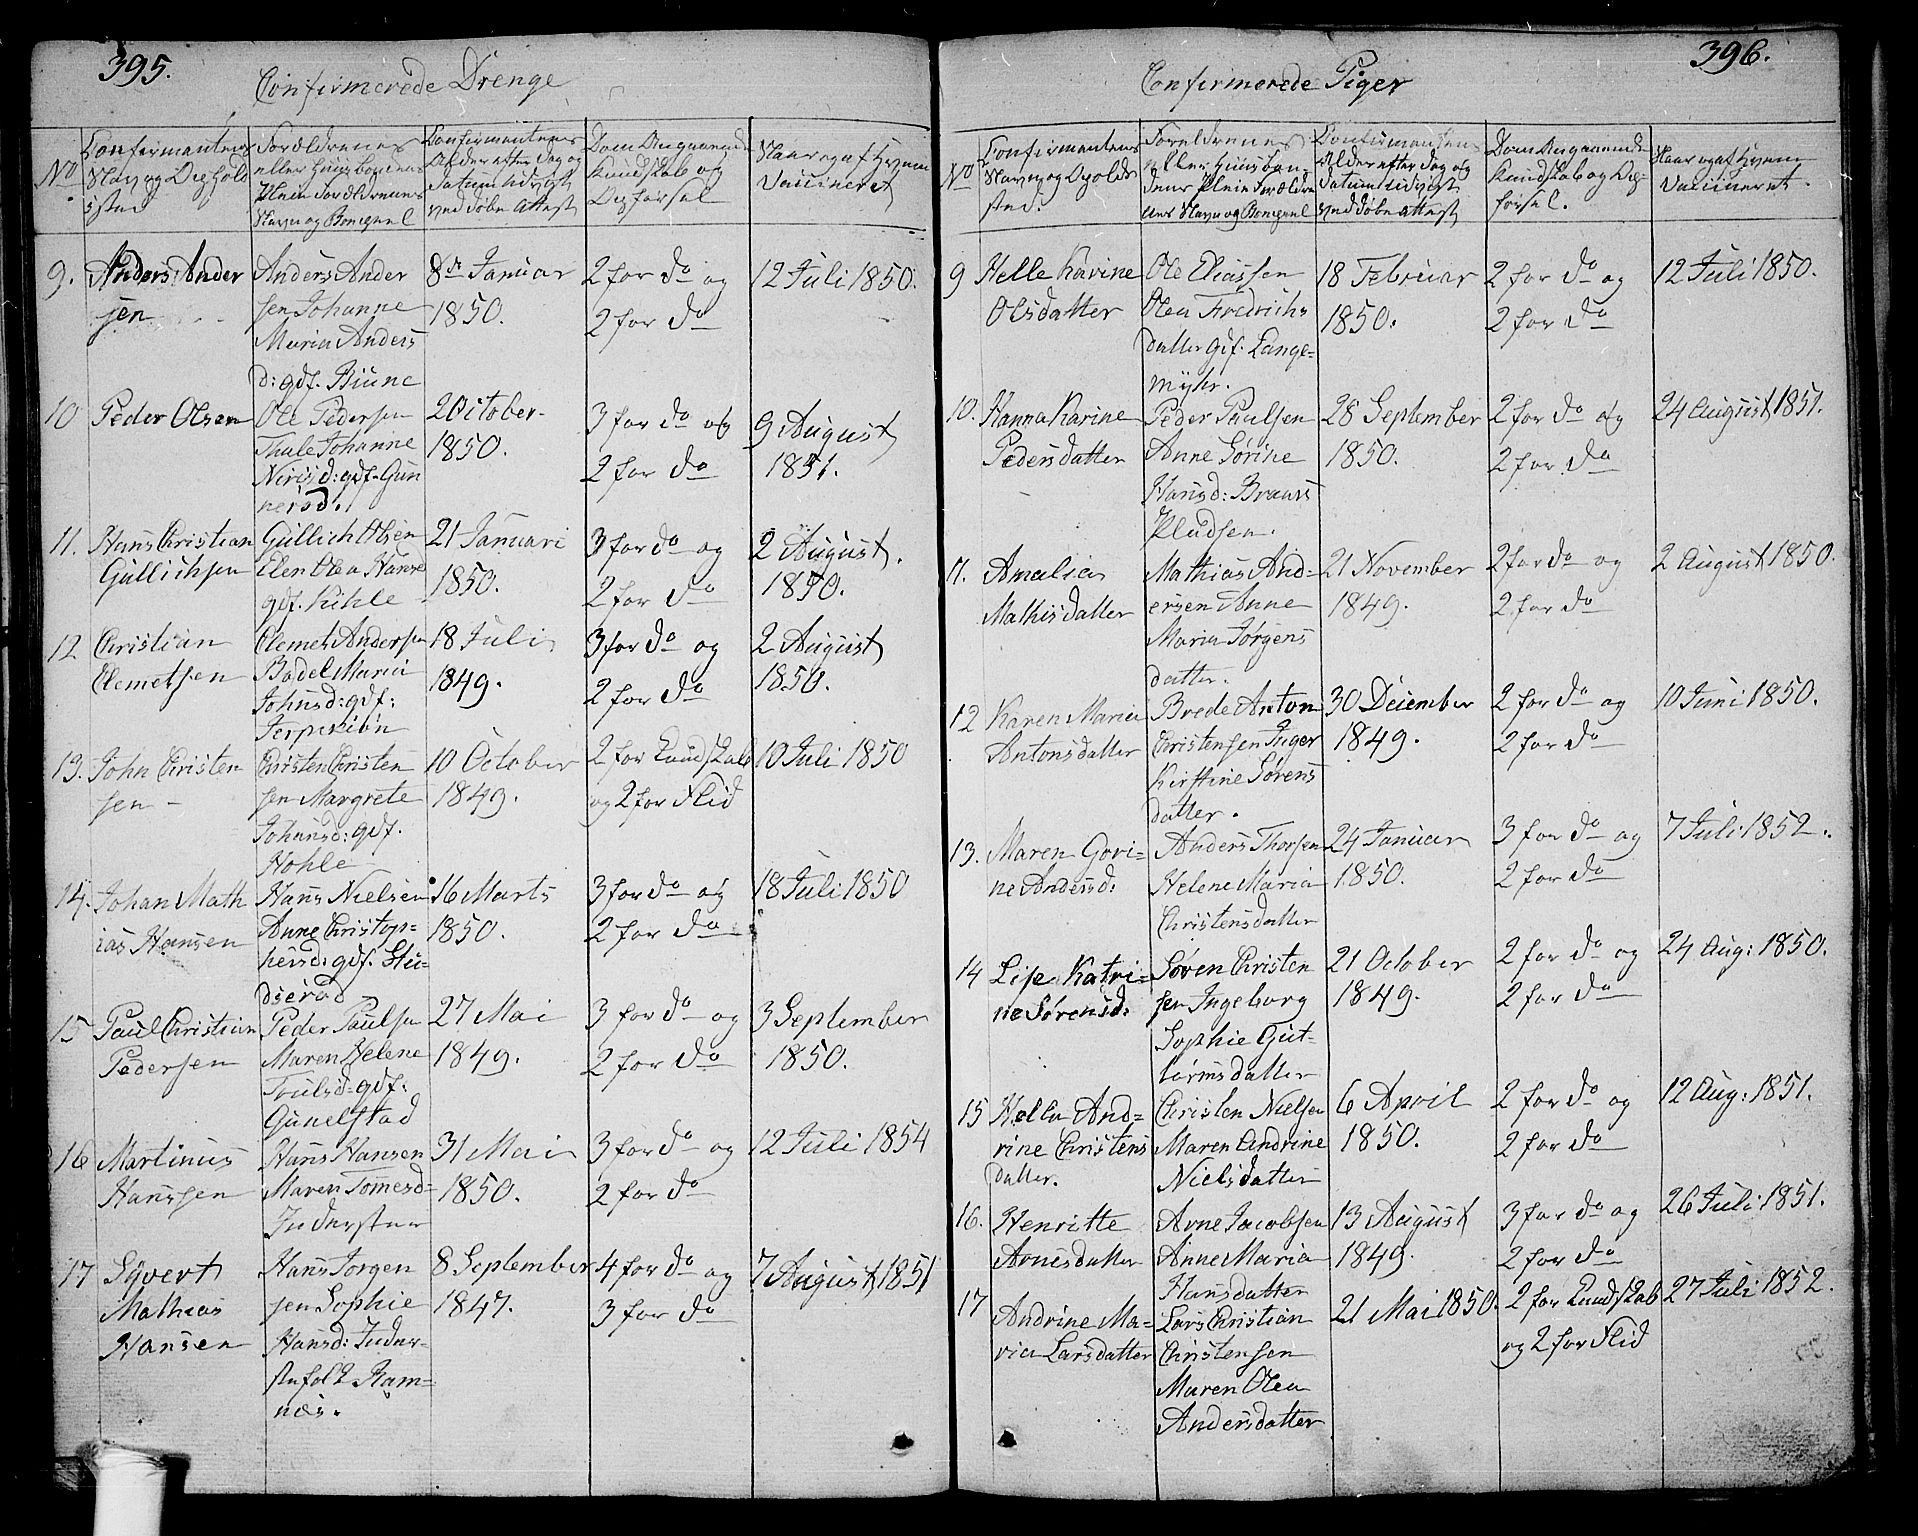 395.
Confirmerede Drenge
No
Confirmantens Navn og Opholdssted
Forældrenes eller Huusbondens Navn og Boepæl
Confirmantens Alder efter Dag og Datum udvist ved døbe Attest
Dom Angaaende Kundskab og Opførsel
Naar og af Hvem Vaccineret
9. Anders Ander 8de Januar 2 for do og 12 Juli 1850.
sen Anders Ander 1850. 2 for do
sen Johanne
Maria Anders
d: gdf. Biune
10 Peder Olsen Ole Pedersen 2 October 3 for do og 9 August
Thale Johanne 1850. 2 for do 1851.
Nirisd: gdf. Gun
nersd.
11. Hans Christian Gullich Olsen 21 Januari 3 for do og 2 August.
Gullichsen Elen Olea Hansd 1850. 2 for do 1850.
gdf. Kihle
12 Christian Clemet Andersen 18 Juli 3 for do og 2 August
Clemetsen Bodel Maria 1849. 2 for do 1850.
Johnsd: gdf:
13. John Christen Christen Christen 10 October 2 for Kundskab 10 Juli 1850
sen sen Margrete 1849. og 2 for Flid
Johansd: gdf.
Hohle
14. Johan Math Hans Nielsen 16 Marts 3 for do og 18 Juli 1850
ias Hansen Anne Christop= 1850. 2 for do
hersd: gdf. Stu=
dserød
15 Paul Christian Peder Paulsen 27 Mai 3 for do og 3 September
Pedersen Maren Helene 1849. 2 for do 1850.
Poulsd: gdf:
Gunelstad
16 Martinus Hans Hansen 31 Mai 3 for do og 12 Juli 1854
Hanssen Maren Tomesd= 1850. 2 for do
17 Syvert Hans Jorgen 8 September 4 for do og 7 August 1851
Mathias sen Sophie 1847. 3 for do
Hansen Hansd: Inder=
Ram=
næs.
396.
Confirmerede Piger
No
Confirmantens Navn og Opholdssted.
Dom Angaaende Kundskab og Opførsel.
Naar og af Hvem Vaccineret.
9 Helle Karine Ole Eliassen 18 Februar 2 for do og 12 Juli 1850.
Olsdatter Olea Fredrichs 1850. 2 for do
datter gdf. Lange=
myhr.
10. Hanna Karine Peder Paulsen 28 September 2 for do og 24 August 1851.
Pedersdatter Anne Sørine 1850. 2 for do
Hansd:
11. Amalia Mathias And= 21 November 2 for do og 2 August 1850.
Mathisdatter ersen Anne 1849. 2 for do
Maria Jørgens
datter.
12 Karen Maria Brede Anton 30 December 2 for do og 10 Juni 1850.
Antonsdatter Christensen Inger 1849. 2 for do
Kirstine Sørens
datter.
13. Maren Govi= Anders Thorsen 24 Januar 3 for do og 7 Juli 1852.
ne Andersd: Helene Maria 1850. 2 for do
Christensdatter
14 Lise Katri= Søren Christen 21 October 2 for do og 24 Aug: 1850.
ne Sørensd: sen Ingeborg 1849. 2 for do
Sophie Gut=
tormsdatter
15 Hella And= Christen Nielsen 6 April 2 for do og 12 Aug: 1851.
rine Christens Maren Andrine 1850. 2 for do
datter. Nielsdatter
16. Henritte Arne Jacobsen 13 August 3 for do og 26 Juli 1851.
Arnesdatter Anne Maria 1849. 2 for do
Hansdatter
17 Andrine Ma= Lars Christian 21 Mai 1850. 2 for Kundskab 27 Juli 1852.
ria Larsdatter Christensen og 2 for Flid
Maren Olea
Andersdatter